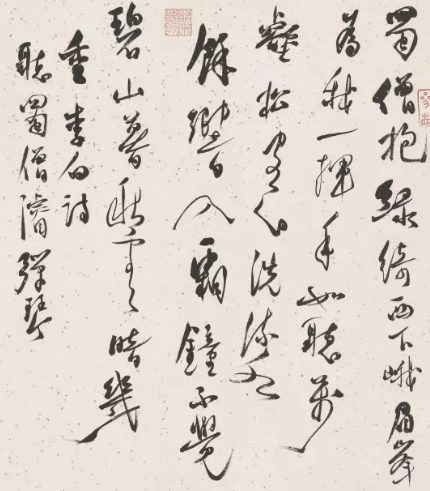 蜀僧抱綠綺西下峨眉峯
為我一揮手如聽萬
壑松客心洗流水
餘響入霜鐘不覺
碧山暮秋雲暗幾
重李白詩
聽蜀僧濬彈琴